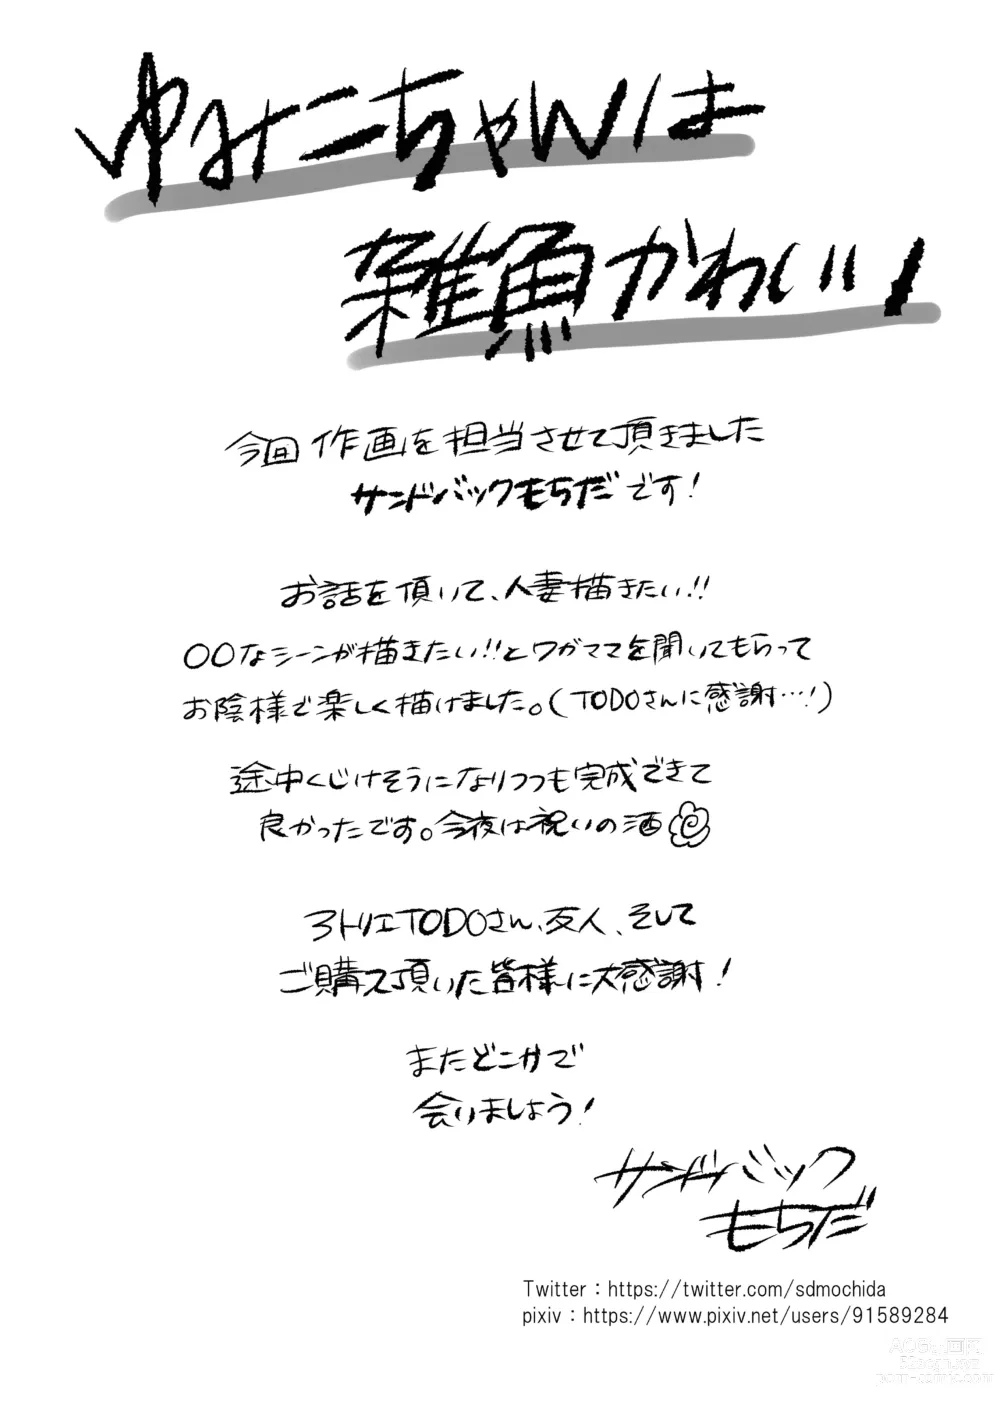 ゆみこちゃんは
雑魚かわいい
今回作画を担当させて頂きました
サンドバックもちだです!
お話を頂いて、人妻描きたい!!
〇〇なシーンが描きたい!!とワガママを聞いてもらって
お陰様で楽しく描けました。(TODOさんに感謝…!)
途中くじけそうになりつつも完成できて
良かったです。今夜は祝いの酒
アトリエTODOさん、友人、そして
ご購入頂いた皆様に大感謝!
またどこかで
会いましょう!
サンドバック
もちだ
Twitter:https://twitter.com/sdmochida
pixiv:https://www.pixiv.net/users/91589284